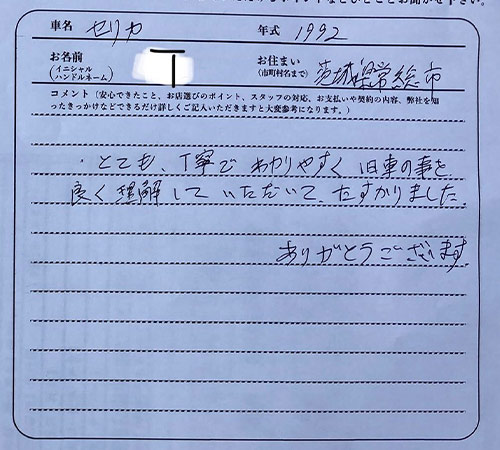 車名 セリカ 年式 1992
お名前 お住まい
(イニシャル
ハンドルネーム) T (市町村名まで) 茨城県常総市
コメント(安心できたこと、お店選びのポイント、スタッフの対応、お支払いや契約の内容、弊社を知
ったきっかけなどできるだけ詳しくご記入いただきますと大変参考になります。)
・とても、丁寧で わかりやすく 旧車の事を
良く理解して いただいて、たすかりました。
ありがとうございます